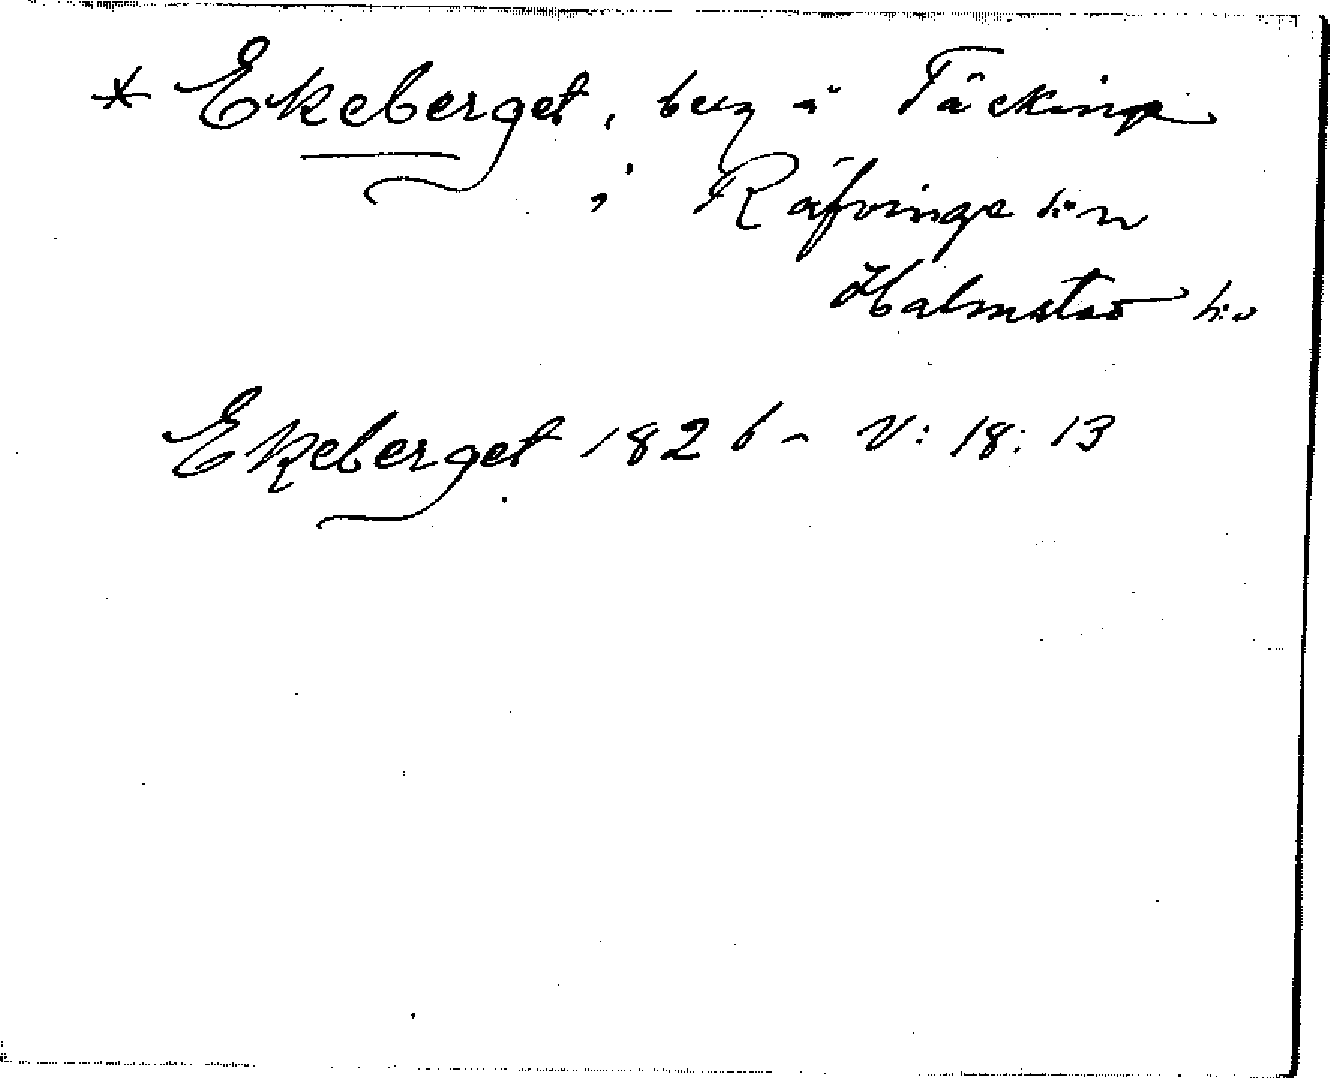 * Ekeberget, berg å Täckinge
i Räfvinge s:n
Halmstad h:d
Ekeberget 1826 - V: 18: 13